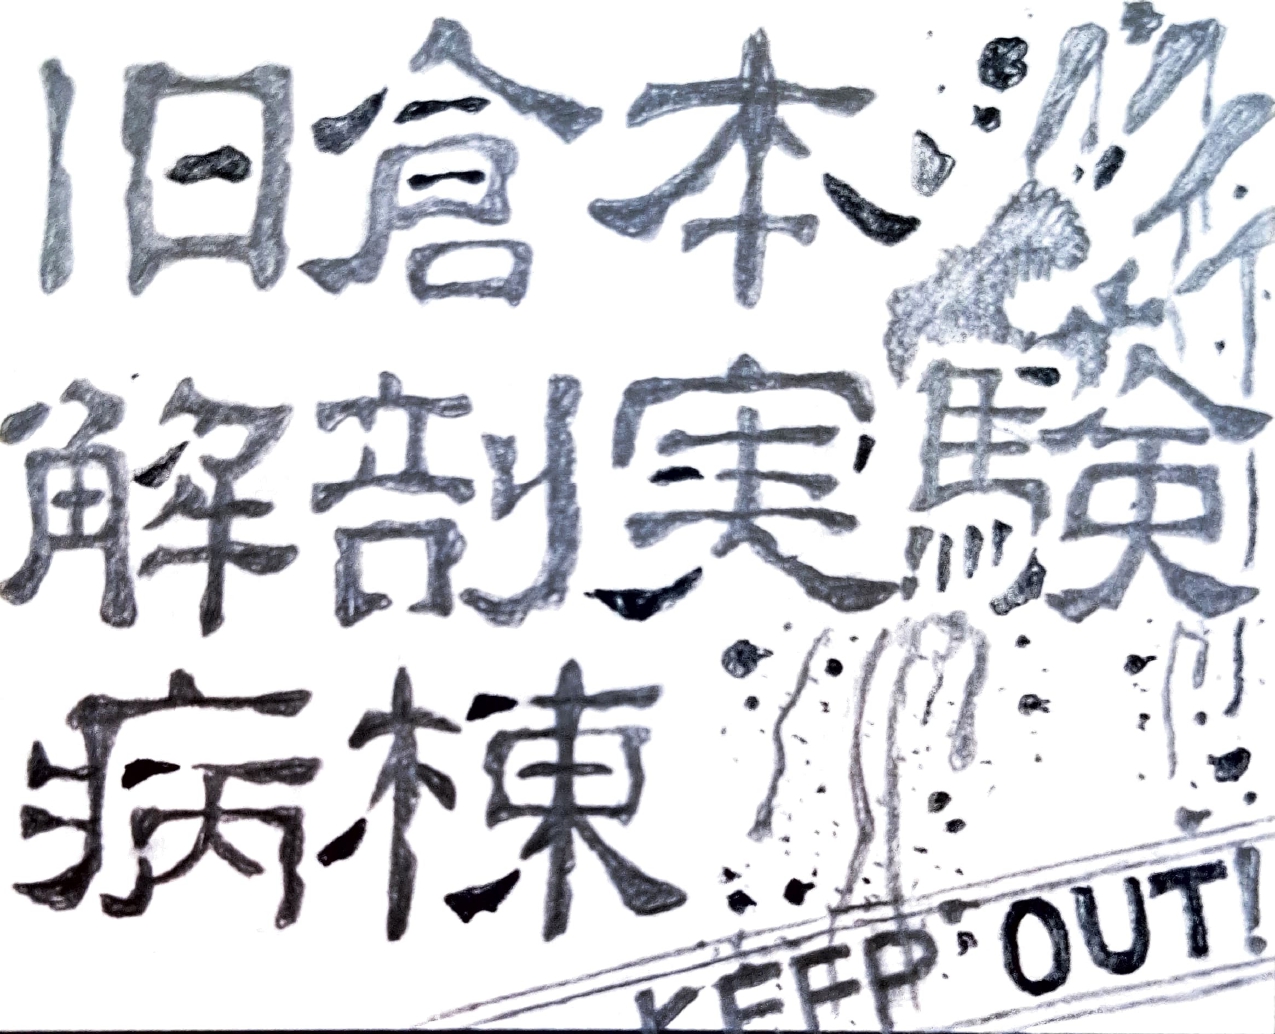 旧倉本
解剖実験
病棟
KEEP OUT!